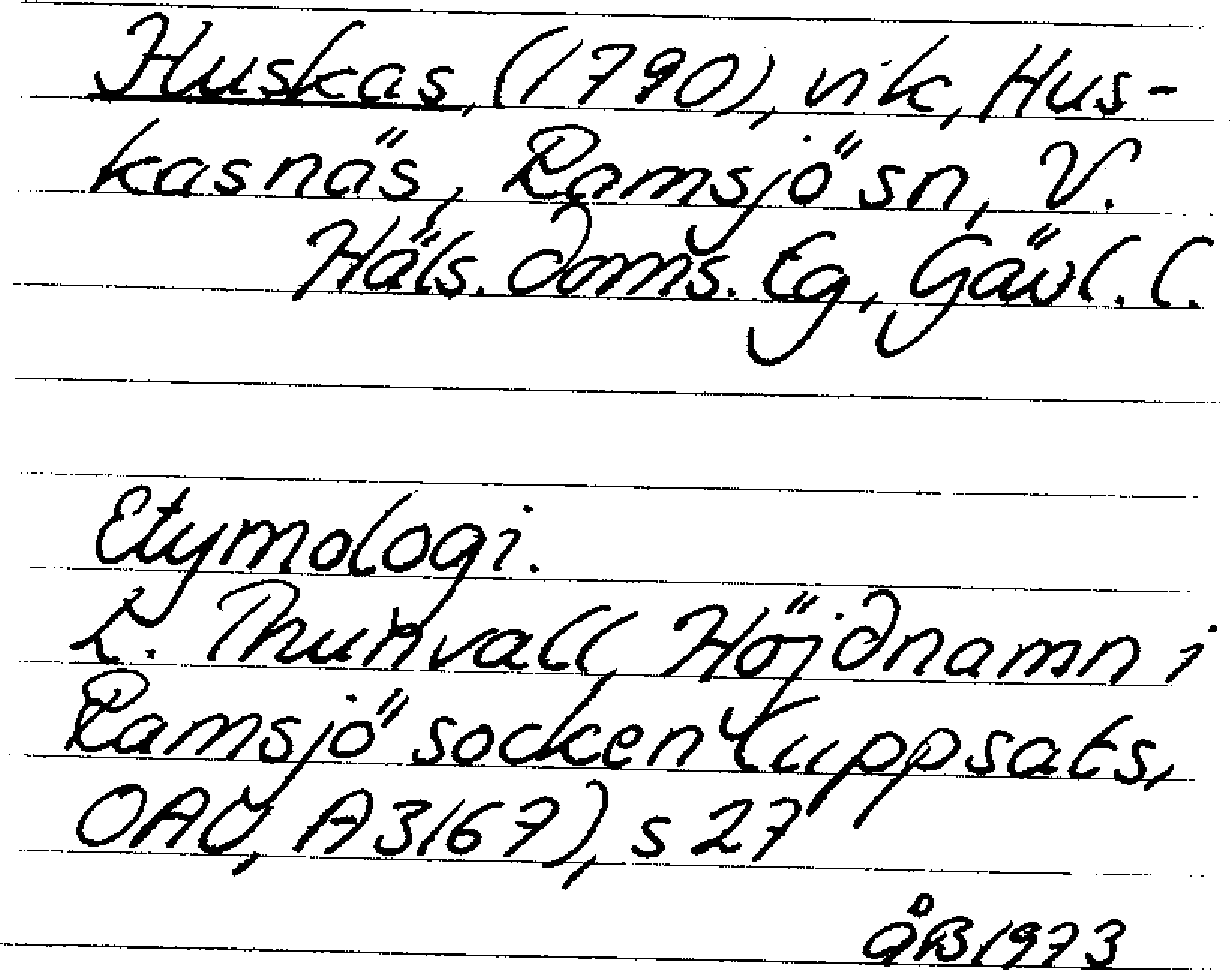 Huskas, (1790), vik, Hus-
kasnäs, Ramsjö sn, V.
Häls. doms. Eg, Gävl. l.
Etymologi.
L. Thunvall, Höjdnamn i
Ramsjö socken (uppsats,
OAU, A3167), s 27
ÅB 1973